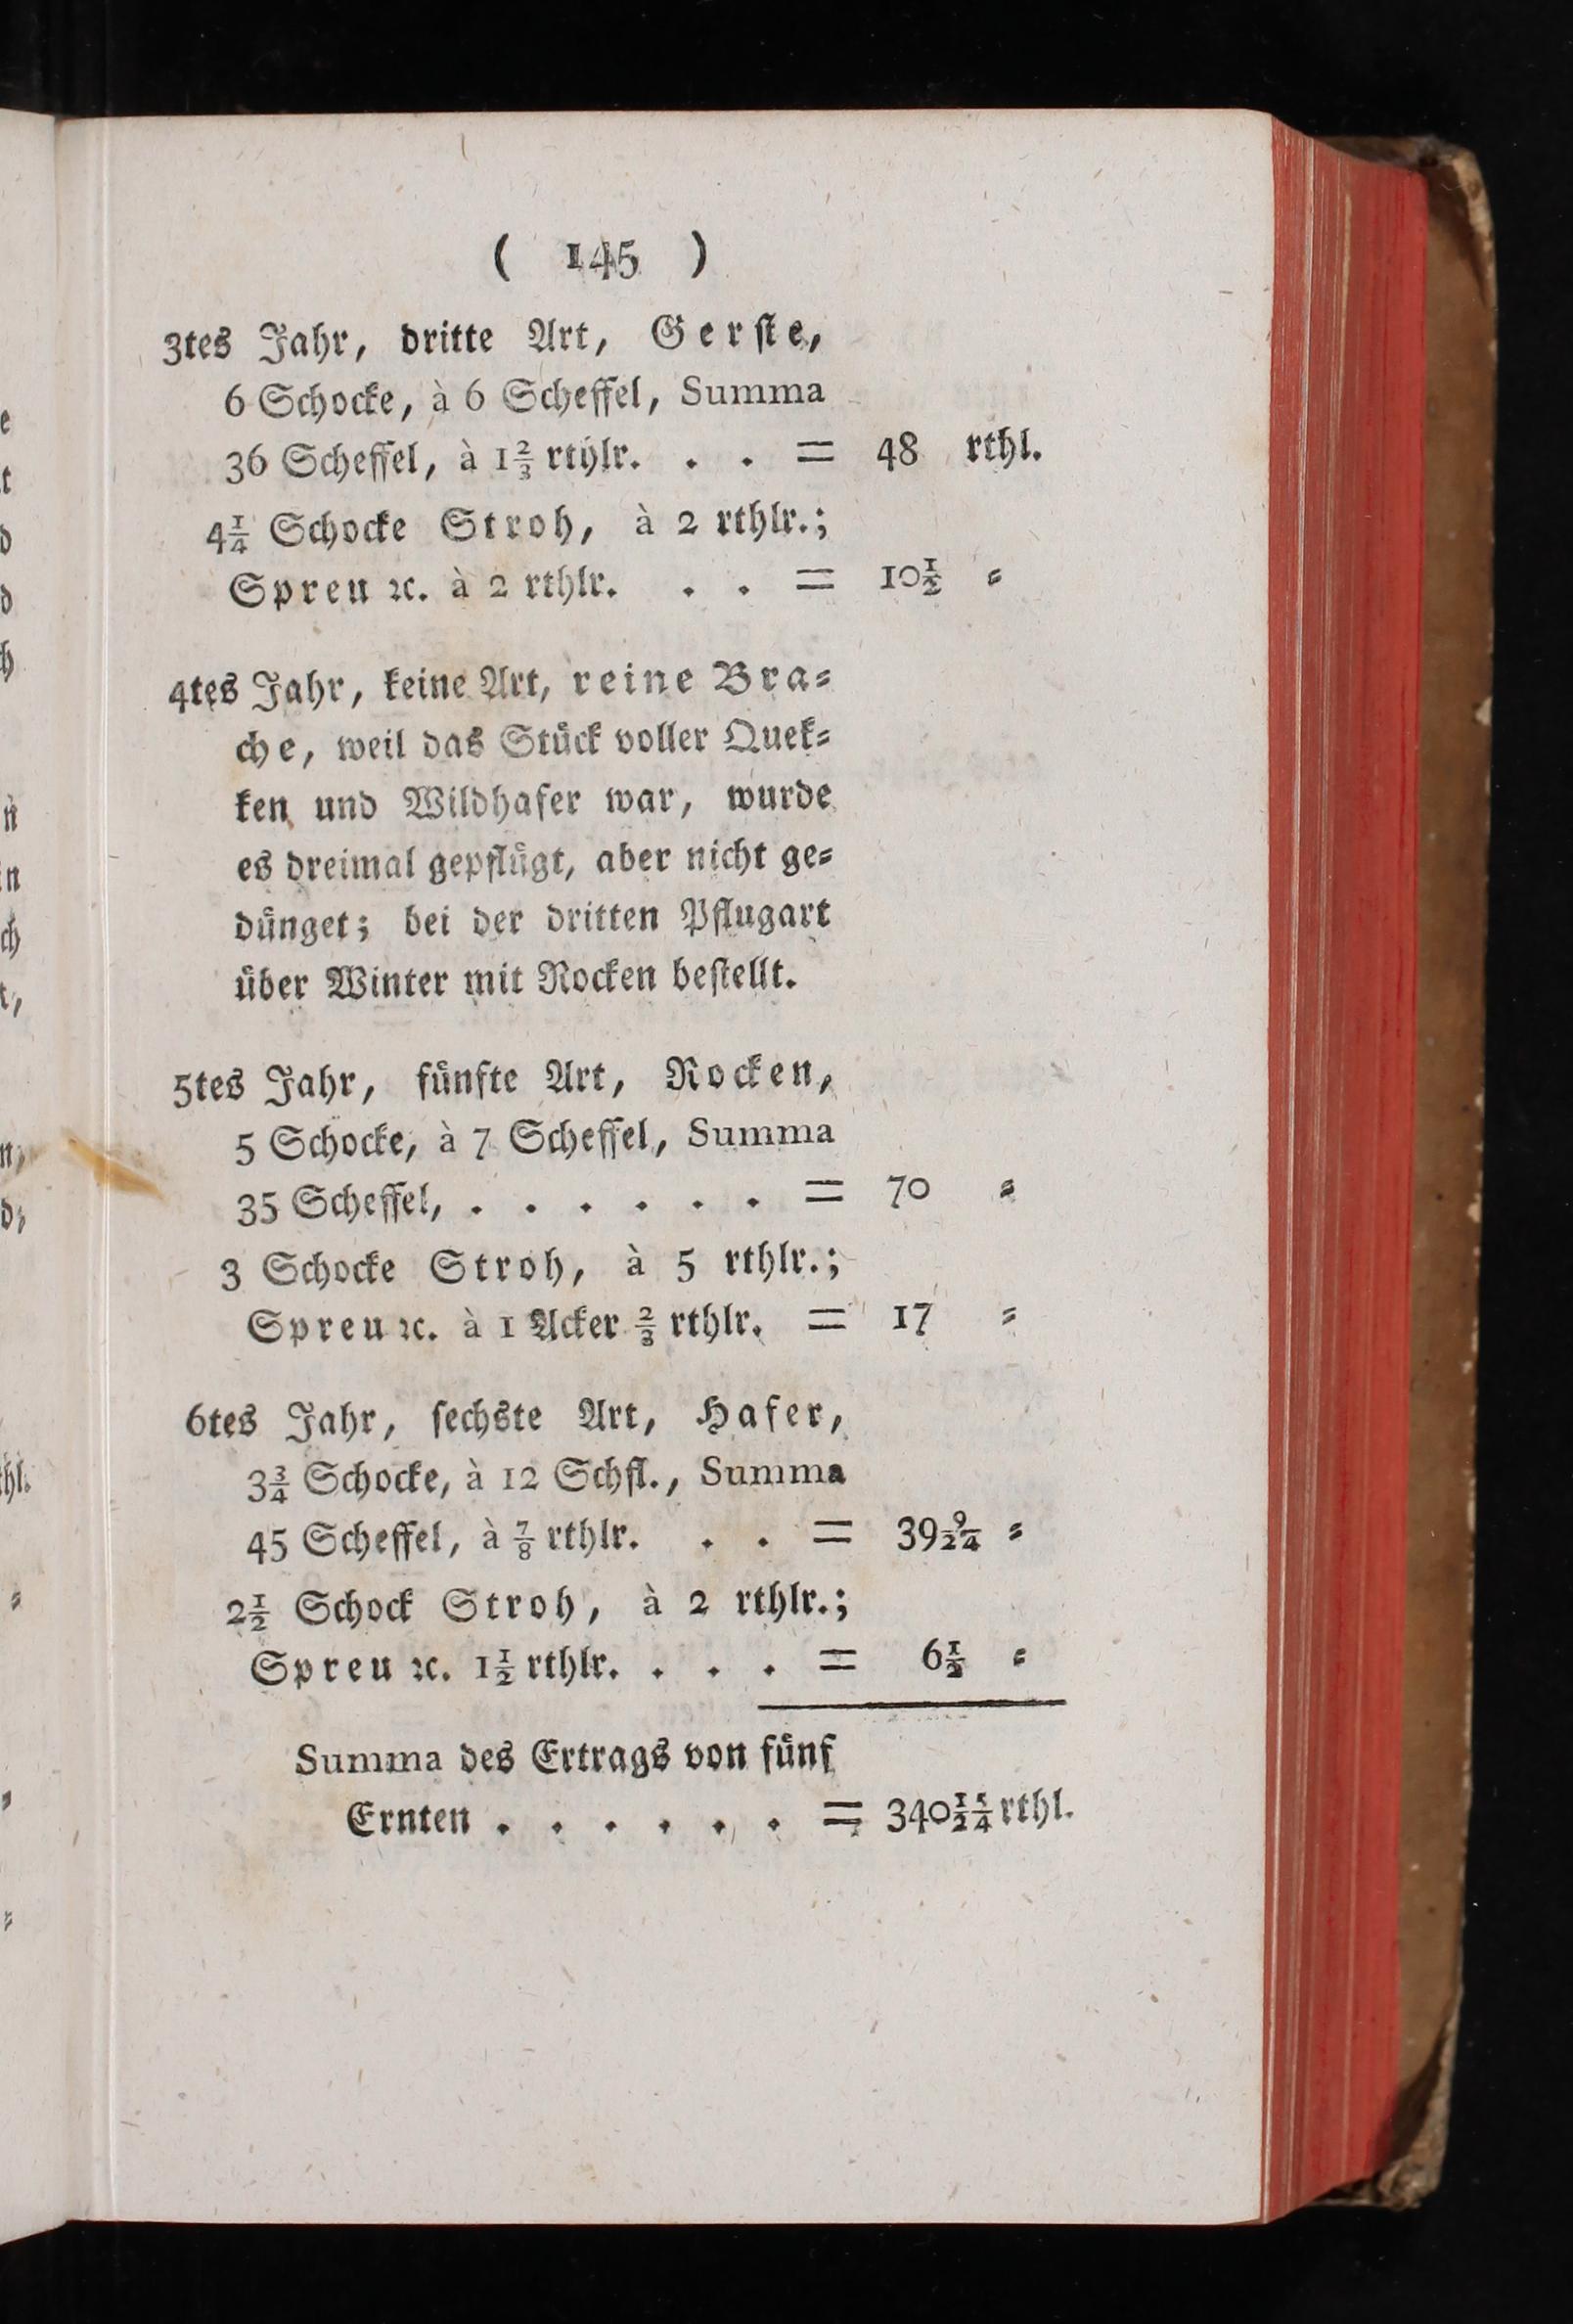 ( 145 )
3tes Jahr, dritte Art, Gerſte,
6 Schocke, à 6 Scheffel, Summa
36 Scheffel, à 1⅔ rthlr. . . = 48 rthl.
4¼ Schocke Stroh, à 2 rthlr.;
Spreu ꝛc. à 2 rthlr. . . = 10½ ⸗
4tes Jahr, keine Art, reine Bra⸗
che, weil das Stück voller Quek⸗
ken und Wildhafer war, wurde
es dreimal gepflügt, aber nicht ge⸗
dünget; bei der dritten Pflugart
über Winter mit Rocken beſtellt.
5tes Jahr, fünfte Art, Rocken,
5 Schocke, à 7 Scheffel, Summa
35 Scheffel, . . . . . . = 70 ⸗
3 Schocke Stroh, à 5 rthlr.;
Spreu ꝛc. à 1 Acker ⅔ rthlr. = 17 ⸗
6tes Jahr, ſechste Art, Hafer,
3¾ Schocke, à 12 Schfl., Summa
45 Scheffel, à ⅞ rthlr. . . = 39 9/24 ⸗
2½ Schock Stroh, à 2 rthlr.;
Spreu ꝛc. 1½ rthlr. . . . = 6½ ⸗
Summa des Ertrags von fünf
Ernten . . . . . . = 340 15/24 rthl.